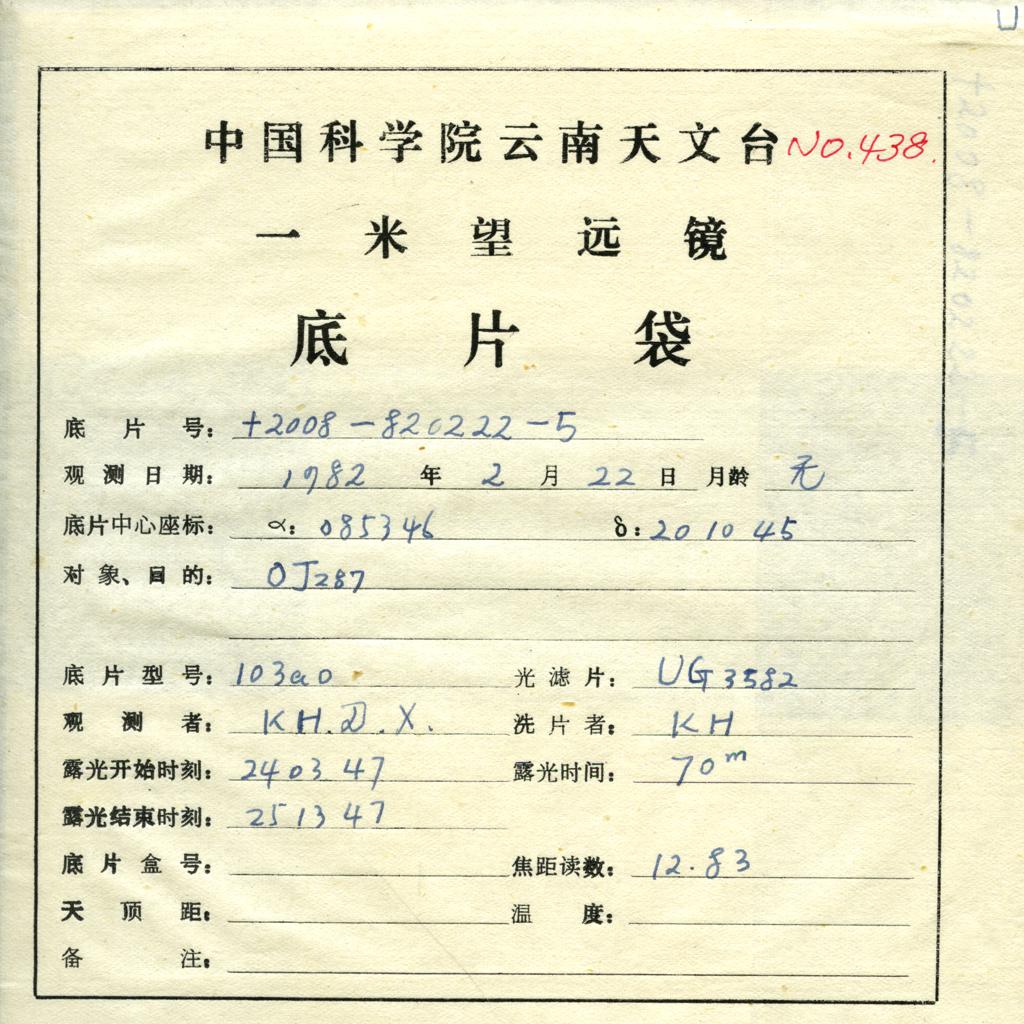 U
中国科学院云南天文台 NO.438.
一米望远镜
底片袋
底片号: +2008-820222-5
观测日期: 1982 年 2 月 22 日 月龄 无
底片中心座标: α: 085346 δ: 20 10 45
对象、目的: OJ287
底片型号: 103a0 光滤片: UG 3582
观测者: KH.D.X. 洗片者: KH
露光开始时刻: 24 03 47 露光时间: 70m
露光结束时刻: 25 13 47
底片盒号: 焦距读数: 12.83
天顶距: 温度:
备注: